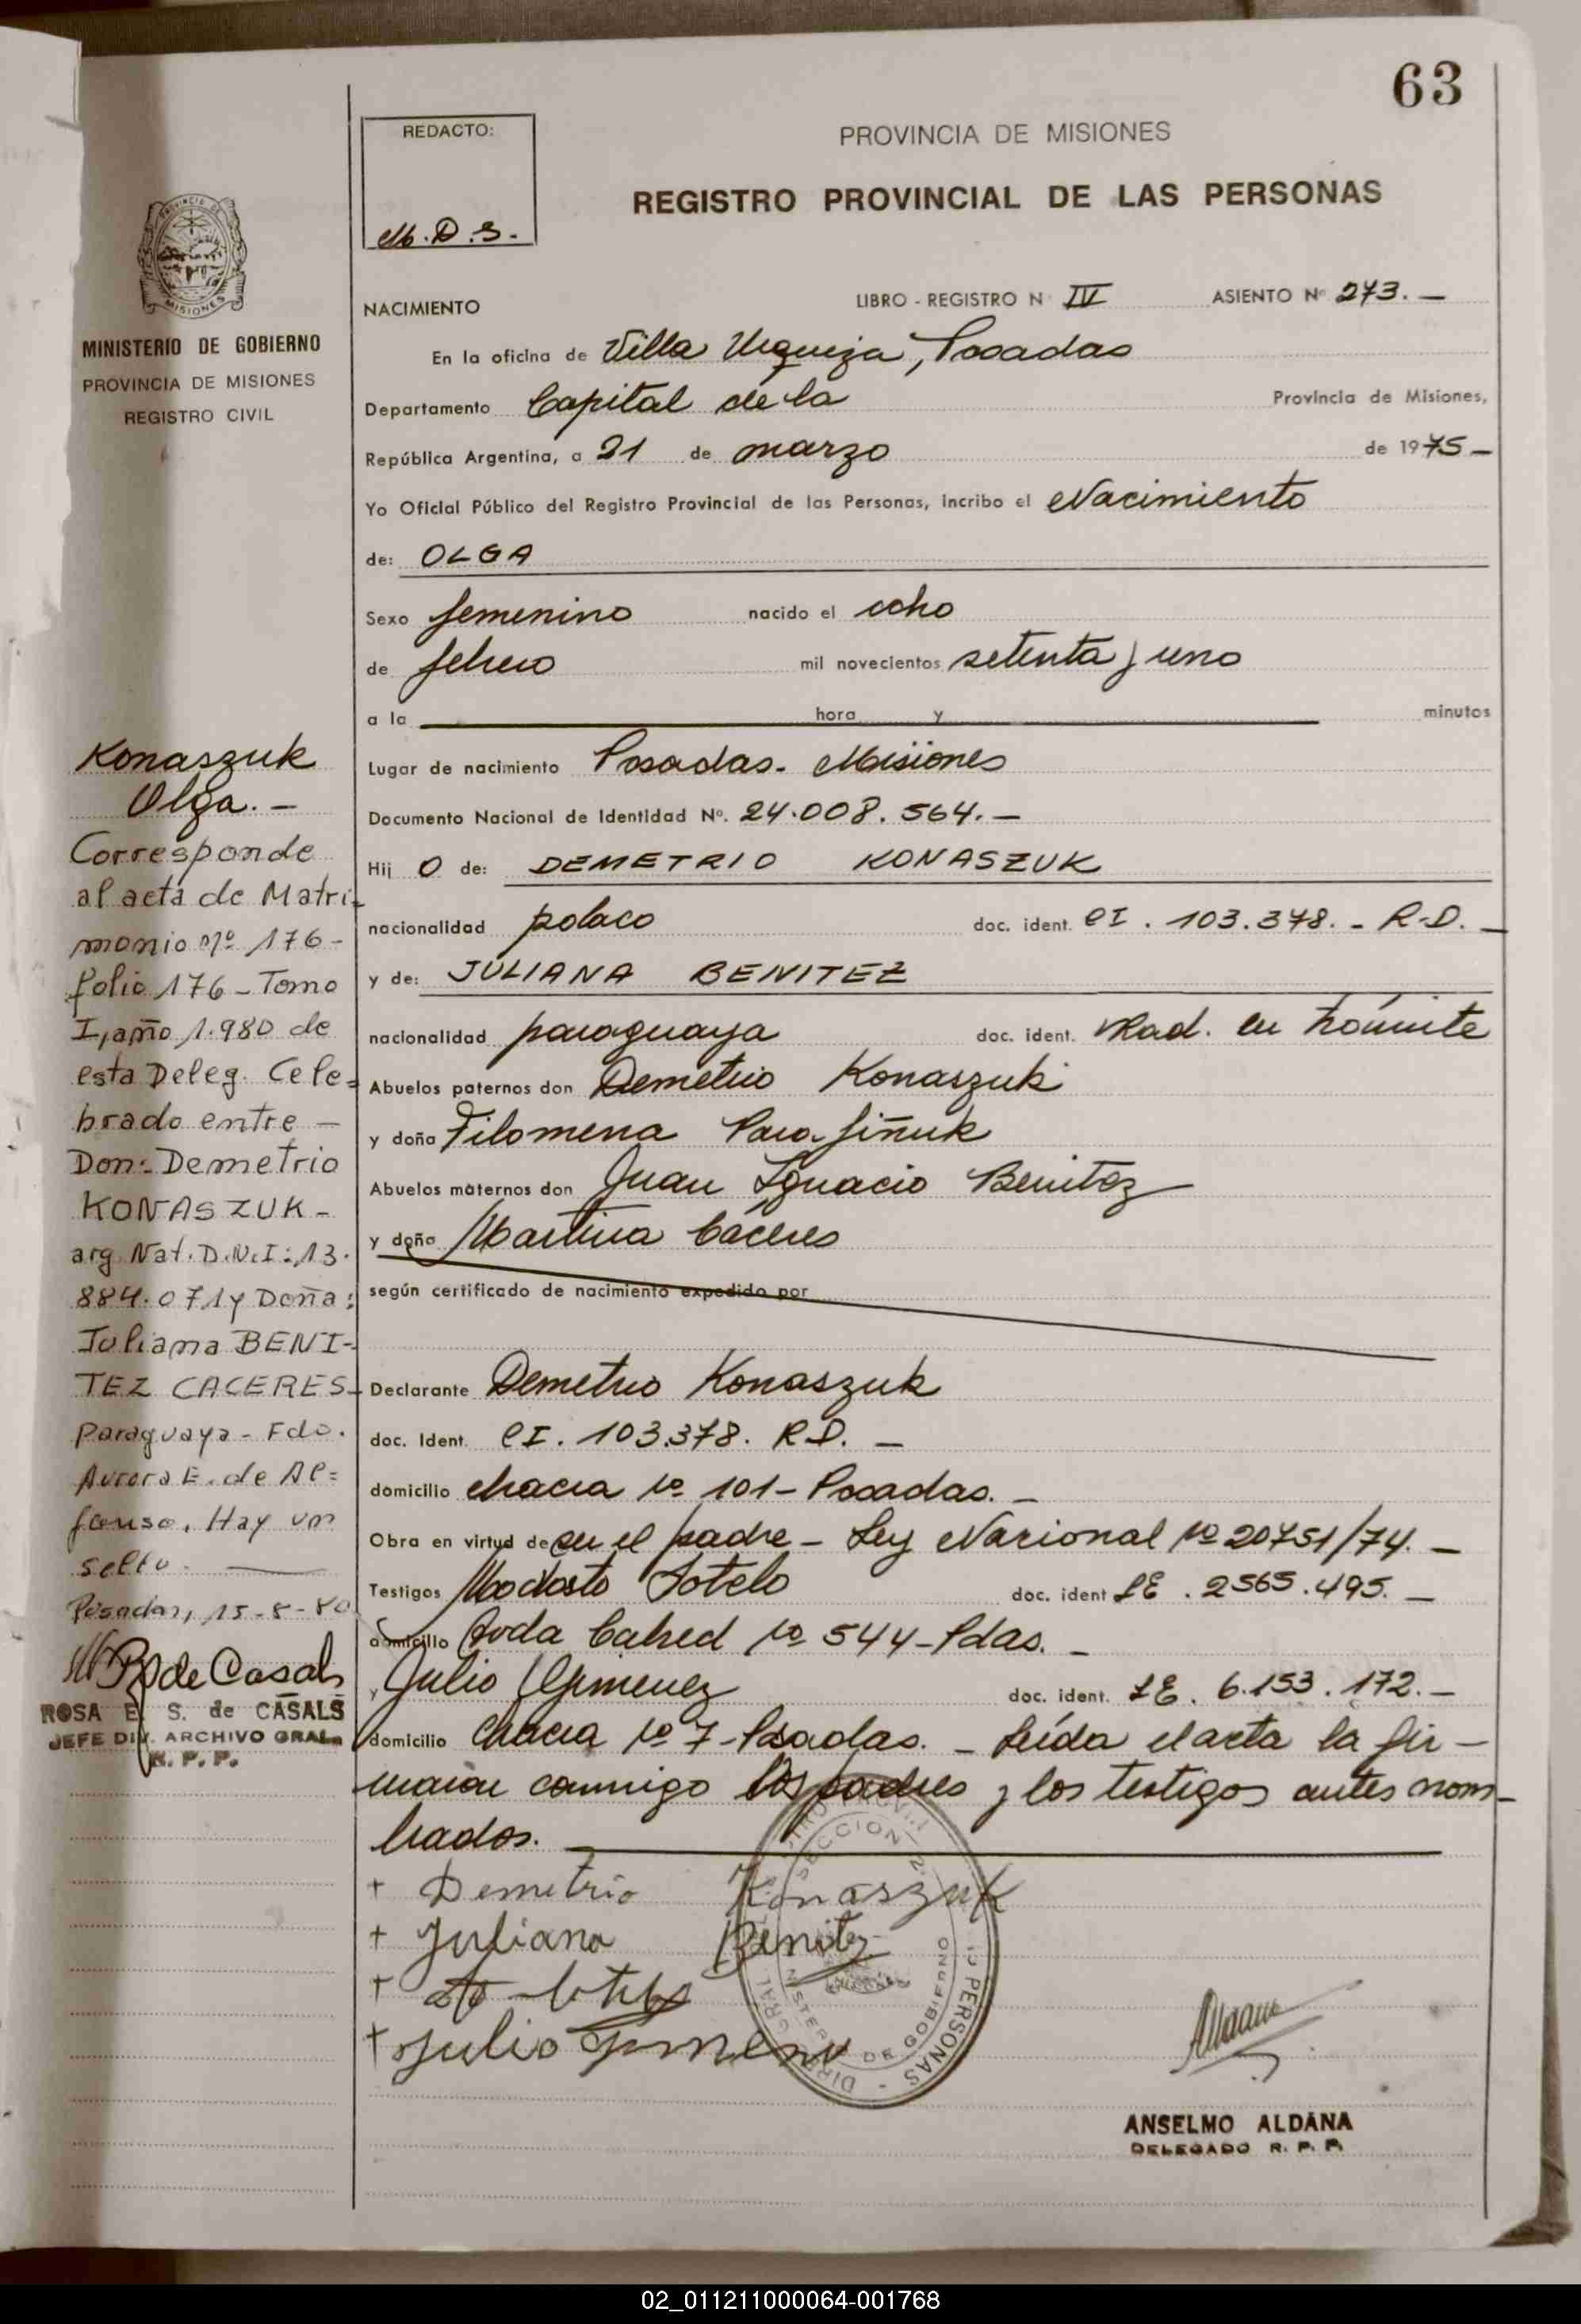 63
REDACTO:
M.D.S.-
PROVINCIA DE MISIONES
REGISTRO PROVINCIAL DE LAS PERSONAS
PROVINCIA DE
MISIONES
MINISTERIO DE GOBIERNO
PROVINCIA DE MISIONES
REGISTRO CIVIL
NACIMIENTO LIBRO - REGISTRO N° IV ASIENTO N° 273.—
En la oficina de Villa Urquiza, Posadas
Departamento Capital de la Provincia de Misiones,
República Argentina, a 21 de marzo de 1975-
Yo Oficial Público del Registro Provincial de las Personas, incribo el Nacimiento
de: OLGA
Sexo femenino nacido el ocho
de febrero mil novecientos setenta y uno
a la hora y minutos
Lugar de nacimiento Posadas.- Misiones
Documento Nacional de Identidad N°. 24.008.564.—
Hij O de: DEMETRIO KONASZUK
nacionalidad polaco doc. ident. CI. 103.378.- R.D.—
y de: JULIANA BENITEZ
nacionalidad paraguaya doc. ident. Rad. en trámite
Abuelos paternos don Demetrio Konaszuk
y doña Filomena Parafiñuk
Abuelos maternos don Juan Ignacio Benitez
y doña Martina Cáceres
según certificado de nacimiento expedido por
Declarante Demetrio Konaszuk
doc. Ident. CI. 103.378. R.D.—
domicilio chacra N° 101- Posadas.—
Obra en virtud de ser el padre - Ley Nacional N° 20751/74.—
Testigos Modesto Sotelo doc. ident LE. 2565.495.—
domicilio Avda Cabred N° 544-Pdas.—
y Julio Gimenez doc. ident. LE. 6.153.172.—
domicilio Chacra N° 7-Posadas.- Leída el acta la fir-
maron conmigo los padres y los testigos antes nom-
brados.
+ Demetrio Konaszuk
+ Juliana Benitez
+ Sotelo
+ Julio Gimenez
SECCION
MINISTERIO DE GOBIERNO
PERSONAS
ANSELMO ALDANA
DELEGADO R. P. P.
Konaszuk
Olga.-
Corresponde
al acta de Matri-
monio Nº 176-
folio 176-Tomo
I, año 1.980 de
esta Deleg. Cele=
brado entre —
Don: Demetrio
KONASZUK-
arg. Nat. D.N.I:,13.
884.071 y Doña:
Juliana BENI-
TEZ CACERES-
Paraguaya- Fdo.
Aurora E. de Al=
fonso. Hay un
sello.—
Posadas, 15-8-80
de Casals
ROSA E. S. de CASALS
JEFE DIV. ARCHIVO GRAL.
R. P. P.
02_011211000064-001768